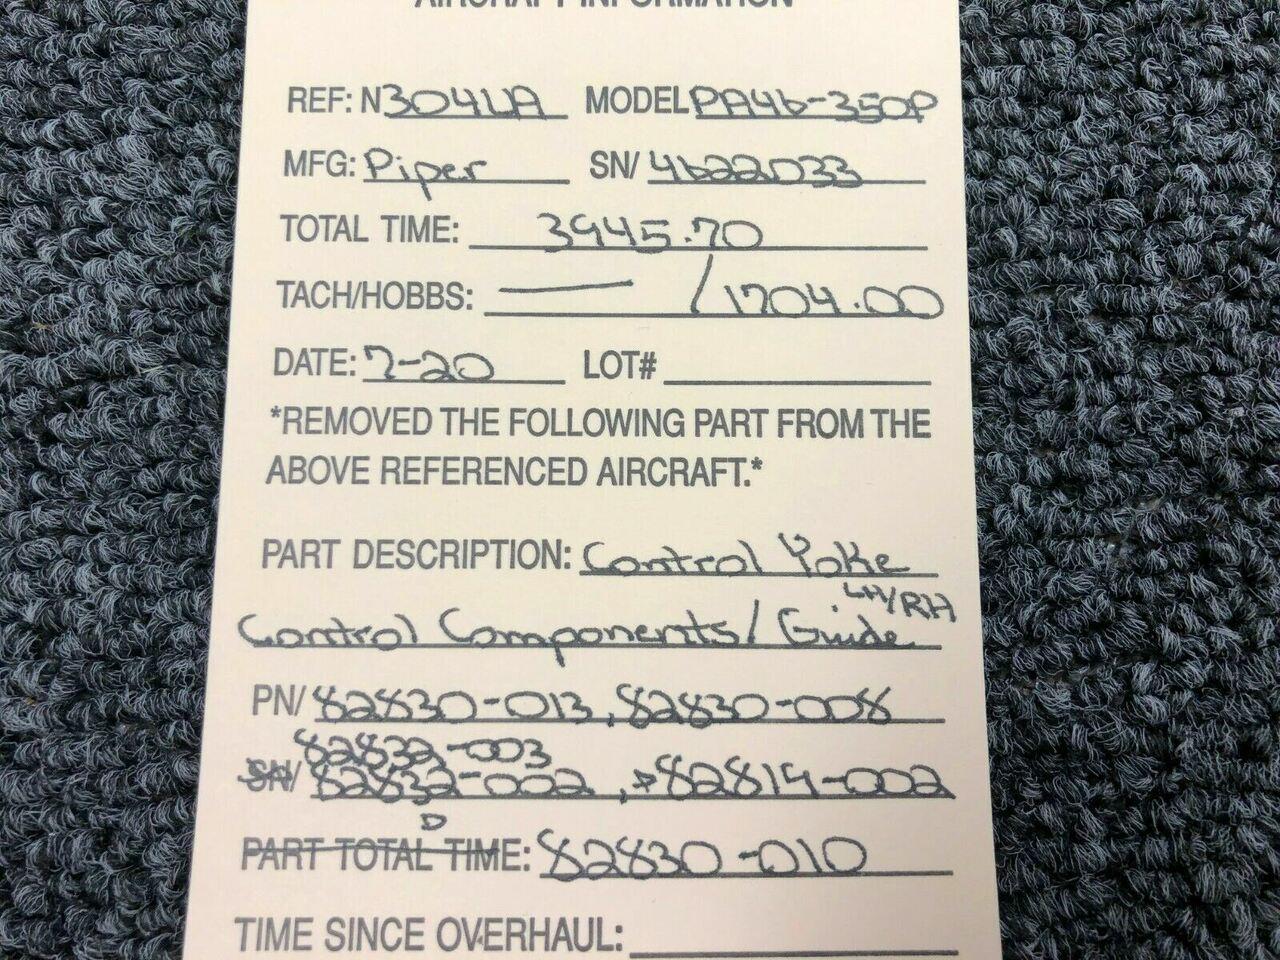 AIRCRAFT INFORMATION
REF: N304LA MODEL PA46-350P
MFG: Piper SN/ 4622033
TOTAL TIME: 3945.70
TACH/HOBBS: — / 1704.00
DATE: 7-20 LOT#
*REMOVED THE FOLLOWING PART FROM THE
ABOVE REFERENCED AIRCRAFT.*
PART DESCRIPTION: Control Yoke
LH/RH
Control Components/ Guide
PN/ 82830-013, 82830-008
82832-003
SN/ 82832-002, 82814-002
PART TOTAL TIME: 82830-010
TIME SINCE OVERHAUL: